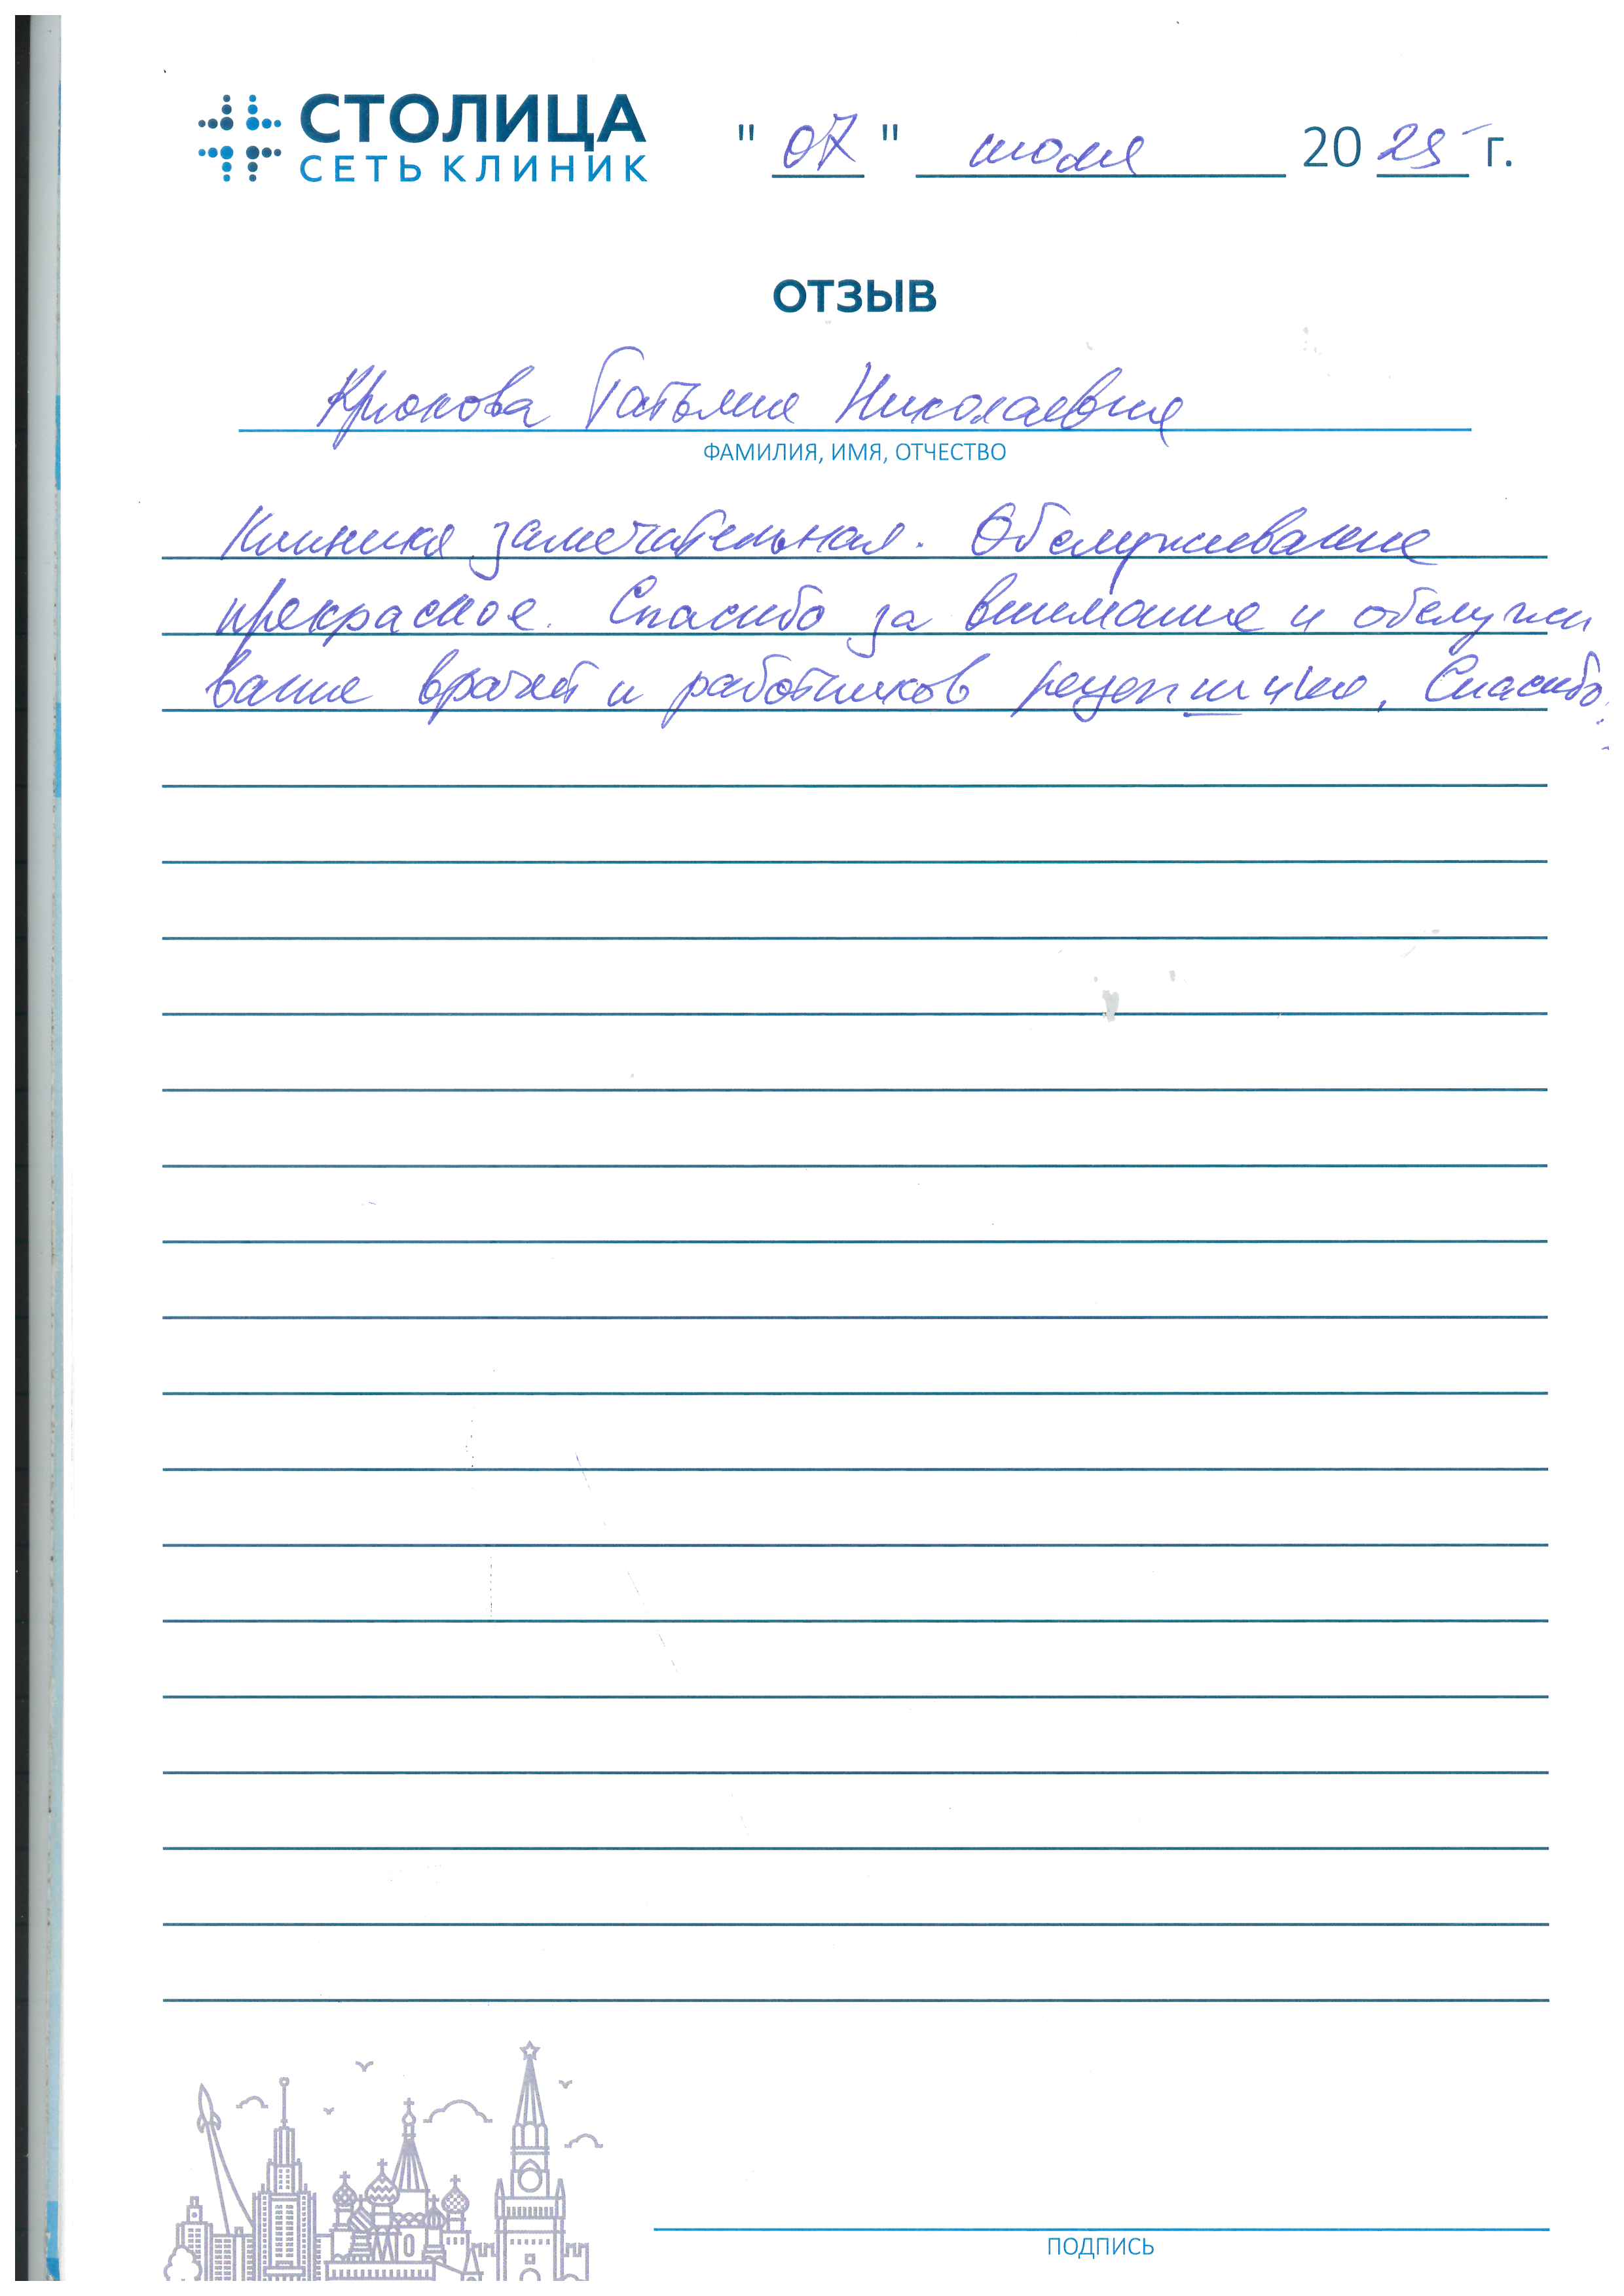 СТОЛИЦА
СЕТЬ КЛИНИК
"07" июля 2025 г.
ОТЗЫВ
Крюкова Татьяна Николаевна
ФАМИЛИЯ, ИМЯ, ОТЧЕСТВО
Клиника замечательная. Обслуживание
прекрасное. Спасибо за внимание и обслужи
вание врачей и работников
Спасибо
ПОДПИСЬ